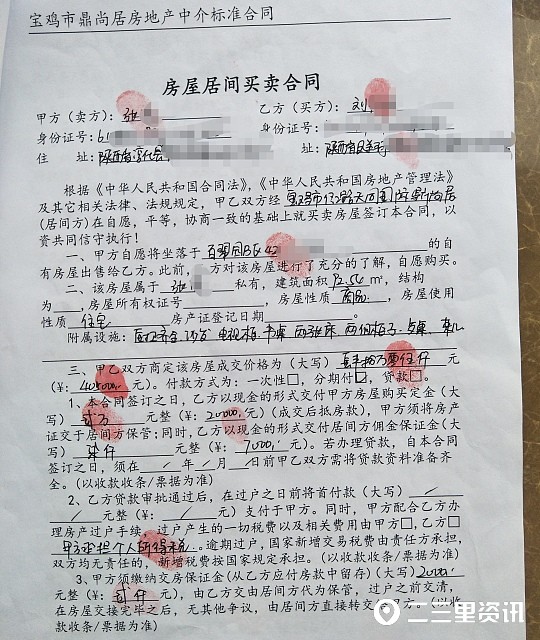 宝鸡市鼎尚居房地产中介标准合同
房屋居间买卖合同
甲方（卖方）：张 乙方（买方）：刘
身份证号：61 身份证号：
住 址：陕西省 址：陕西省
根据《中华人民共和国合同法》，《中华人民共和国房地产管理法》
及其它相关法律、法规规定，甲乙双方经
(居间方)在自愿，平等，协商一致的基础上就买卖房屋签订本合同，以
资共同信守执行！
一、甲方自愿将坐落于 的自
有房屋出售给乙方。此前， 方对该房屋进行了充分的了解，自愿购买。
二、该房屋属于 张 私有，建筑面积 72.54 ㎡，结构
为 ，房屋所有权证号 ，房屋性质 商品，房屋使用
性质 住宅 房产证登记日期 。
附属设施：
三、甲乙双方商定该房屋成交价格为（大写） 元
（¥： 405000. 元）。付款方式为：一次性□，分期付□，贷款□。
1、本合同签订之日，乙方以现金的形式交付甲方房屋购买定金（大
写） 贰万 元整（¥： 20000. 元）（成交后抵房款），甲方须将房产
证交于居间方保管；同时，乙方以现金的形式交付居间方佣金保证金（大
写） 柒仟 元整（¥： 7000. 元）。若办理贷款，自本合同
签订之日，须在 / 年 / 月 / 日前甲乙双方需将贷款资料准备齐
全。（以收款收条/票据为准）
2、乙方贷款审批通过后，在过户之日前将首付款（大写） /
/ 元整（¥： / 元）支付于甲方。同时，甲方配合乙方办
理房产过户手续，过户产生的一切税费以及相关费用由甲方□,乙方□
甲方承担个人所得税。逾期过户，国家新增交易税费由责任方承担，
双方均无责任的，新增税费按国家规定承担。（以收款收条/票据为准）
3、甲方须缴纳交房保证金（从乙方应付房款中留存）（大写）2000
（¥： 贰仟 元），由乙方交由居间方代为保管，过户之前交清，
在房屋交接完毕之后，无其他争议，由居间方直接转交 方。（以收
款收条/票据为准）
二三里资讯